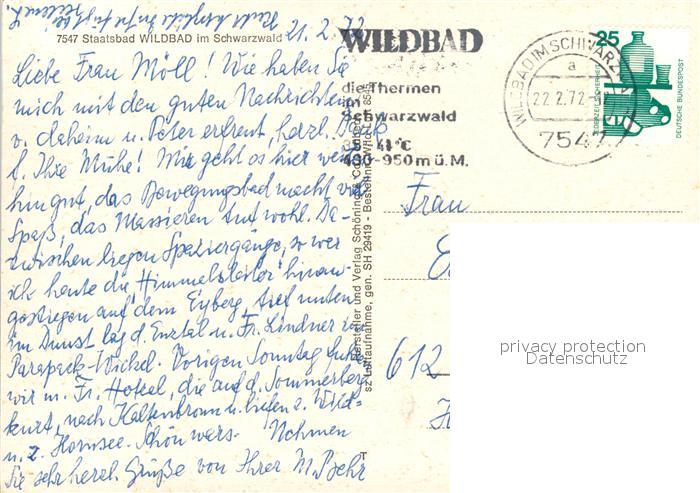 21.2.72
7547 Staatsbad WILDBAD im Schwarzwald
Liebe Frau Möll! Wie haben Sie
mich mit den guten Nachrichten
v. daheim u. Peter erfreut, herzl. Dank
f. Ihre Mühe! Mir geht es hier weiter-
hin gut, das Bewegungsbad macht viel
Spaß, das Massieren tut wohl. Da-
zwischen liegen Spaziergänge, so wer
ich heute die "Himmelsleiter" hinauf-
gestiegen auf dem Eyberg, tief unten
im Dunst lag d. Enztal u. Fr. Lindner im
Parapack-Wickel. Vorigen Sonntag fuhren
wir m. Fr. Hotzel, die auf d. Sommerberg
kurt, nach Kaltenbronn u. liefen z. Wild-
u. z. Hornsee. Schön wars. Nehmen
Sie sehr herzl. Grüße von Ihrer M. Behr
WILDBAD
die Thermen
im
Schwarzwald
35-41°C
430-950 m ü.M.
WILDBAD IM SCHWARZW
a
22.2.72
7547
25
JEDERZEIT SICHERHEIT
DEUTSCHE BUNDESPOST
Hersteller und Verlag Schöning & Co
sz Luftaufnahme, gen. SH 29419 - Bestellnr. Wild L 8545
Frau
612
T
privacy protection
Datenschutz